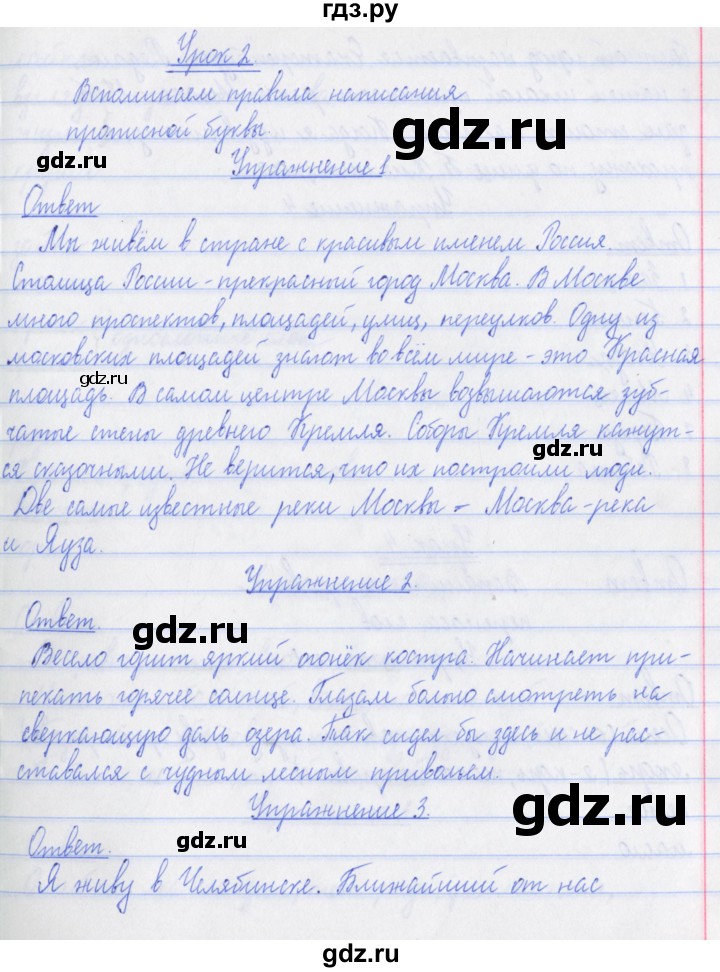 гдз.ру
Урок 2
Вспоминаем правила написания
прописной буквы.
gdz.ru
gdz.ru
Упражнение 1
Ответ
Мы живём в стране с красивым именем Россия.
Столица России - прекрасный город Москва. В Москве
много проспектов, площадей, улиц, переулков. Одну из
московских площадей знают во всём мире - это Красная
gdz.ru
площадь. В самом центре Москвы возвышаются зуб-
чатые стены древнего Кремля. Соборы Кремля кажут-
ся сказочными. Не верится, что их построили люди.
gdz.ru
Две самые известные реки Москвы - Москва-река
и Яуза.
Упражнение 2.
Ответ.
gdz.ru
Весело горит яркий огонёк костра. Начинает при-
пекать горячее солнце. Глазам больно смотреть на
сверкающую даль озера. Так сидел бы здесь и не рас-
ставался с чудным лесным привольем.
gdz.ru
Упражнение 3.
Ответ.
gdz.ru
Я живу в Челябинске. Ближайший от нас
gdz.ru